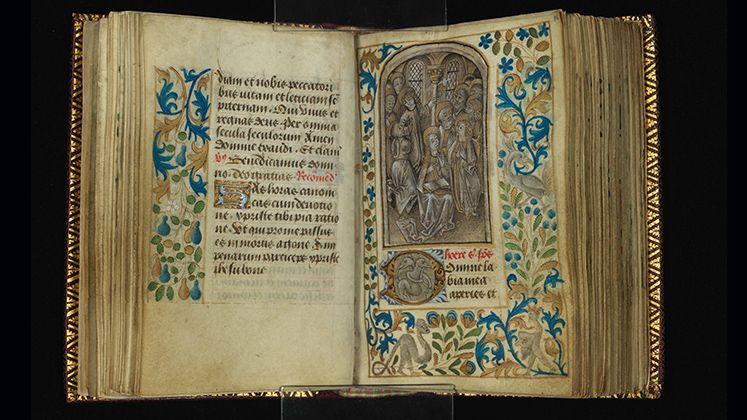 diam et nobis peccatori
bus uitam et leticiam se
piternam. Qui viuis et
regnas deus. Per omnia
secula seculorum Amen
Domine exaudi. Et clam
Benedicamus domi
no. deo gratias Recomed
Has horas canoni
cas cum deuotio
ne. xpriste tibi pia ratio
ne. Vt qui pro me passus
es in mortis agone. Sim
penarum particeps xpriste
ihesu bone
Domine la
bia mea
aperies et